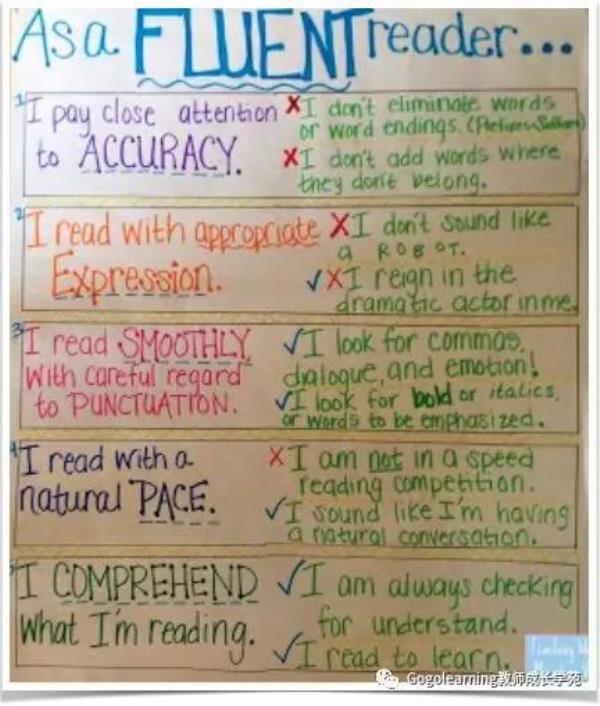 As a FLUENT reader...
1 I pay close attention
to ACCURACY.
X I don't eliminate words
or word endings. (Prefixes-Suffixes)
X I don't add words where
they don't belong.
2 I read with appropriate
Expression.
X I don't sound like
a ROBOT.
✓X I reign in the
dramatic actor in me.
3 I read SMOOTHLY
with careful regard
to PUNCTUATION.
✓ I look for commas,
dialogue, and emotion!
✓ I look for bold or italics,
or words to be emphasized.
4 I read with a
natural PACE.
X I am not in a speed
reading competition.
✓ I sound like I'm having
a natural conversation.
5 I COMPREHEND
what I'm reading.
✓ I am always checking
for understand.
✓ I read to learn.
Teaching
Gogolearning教师成长学苑